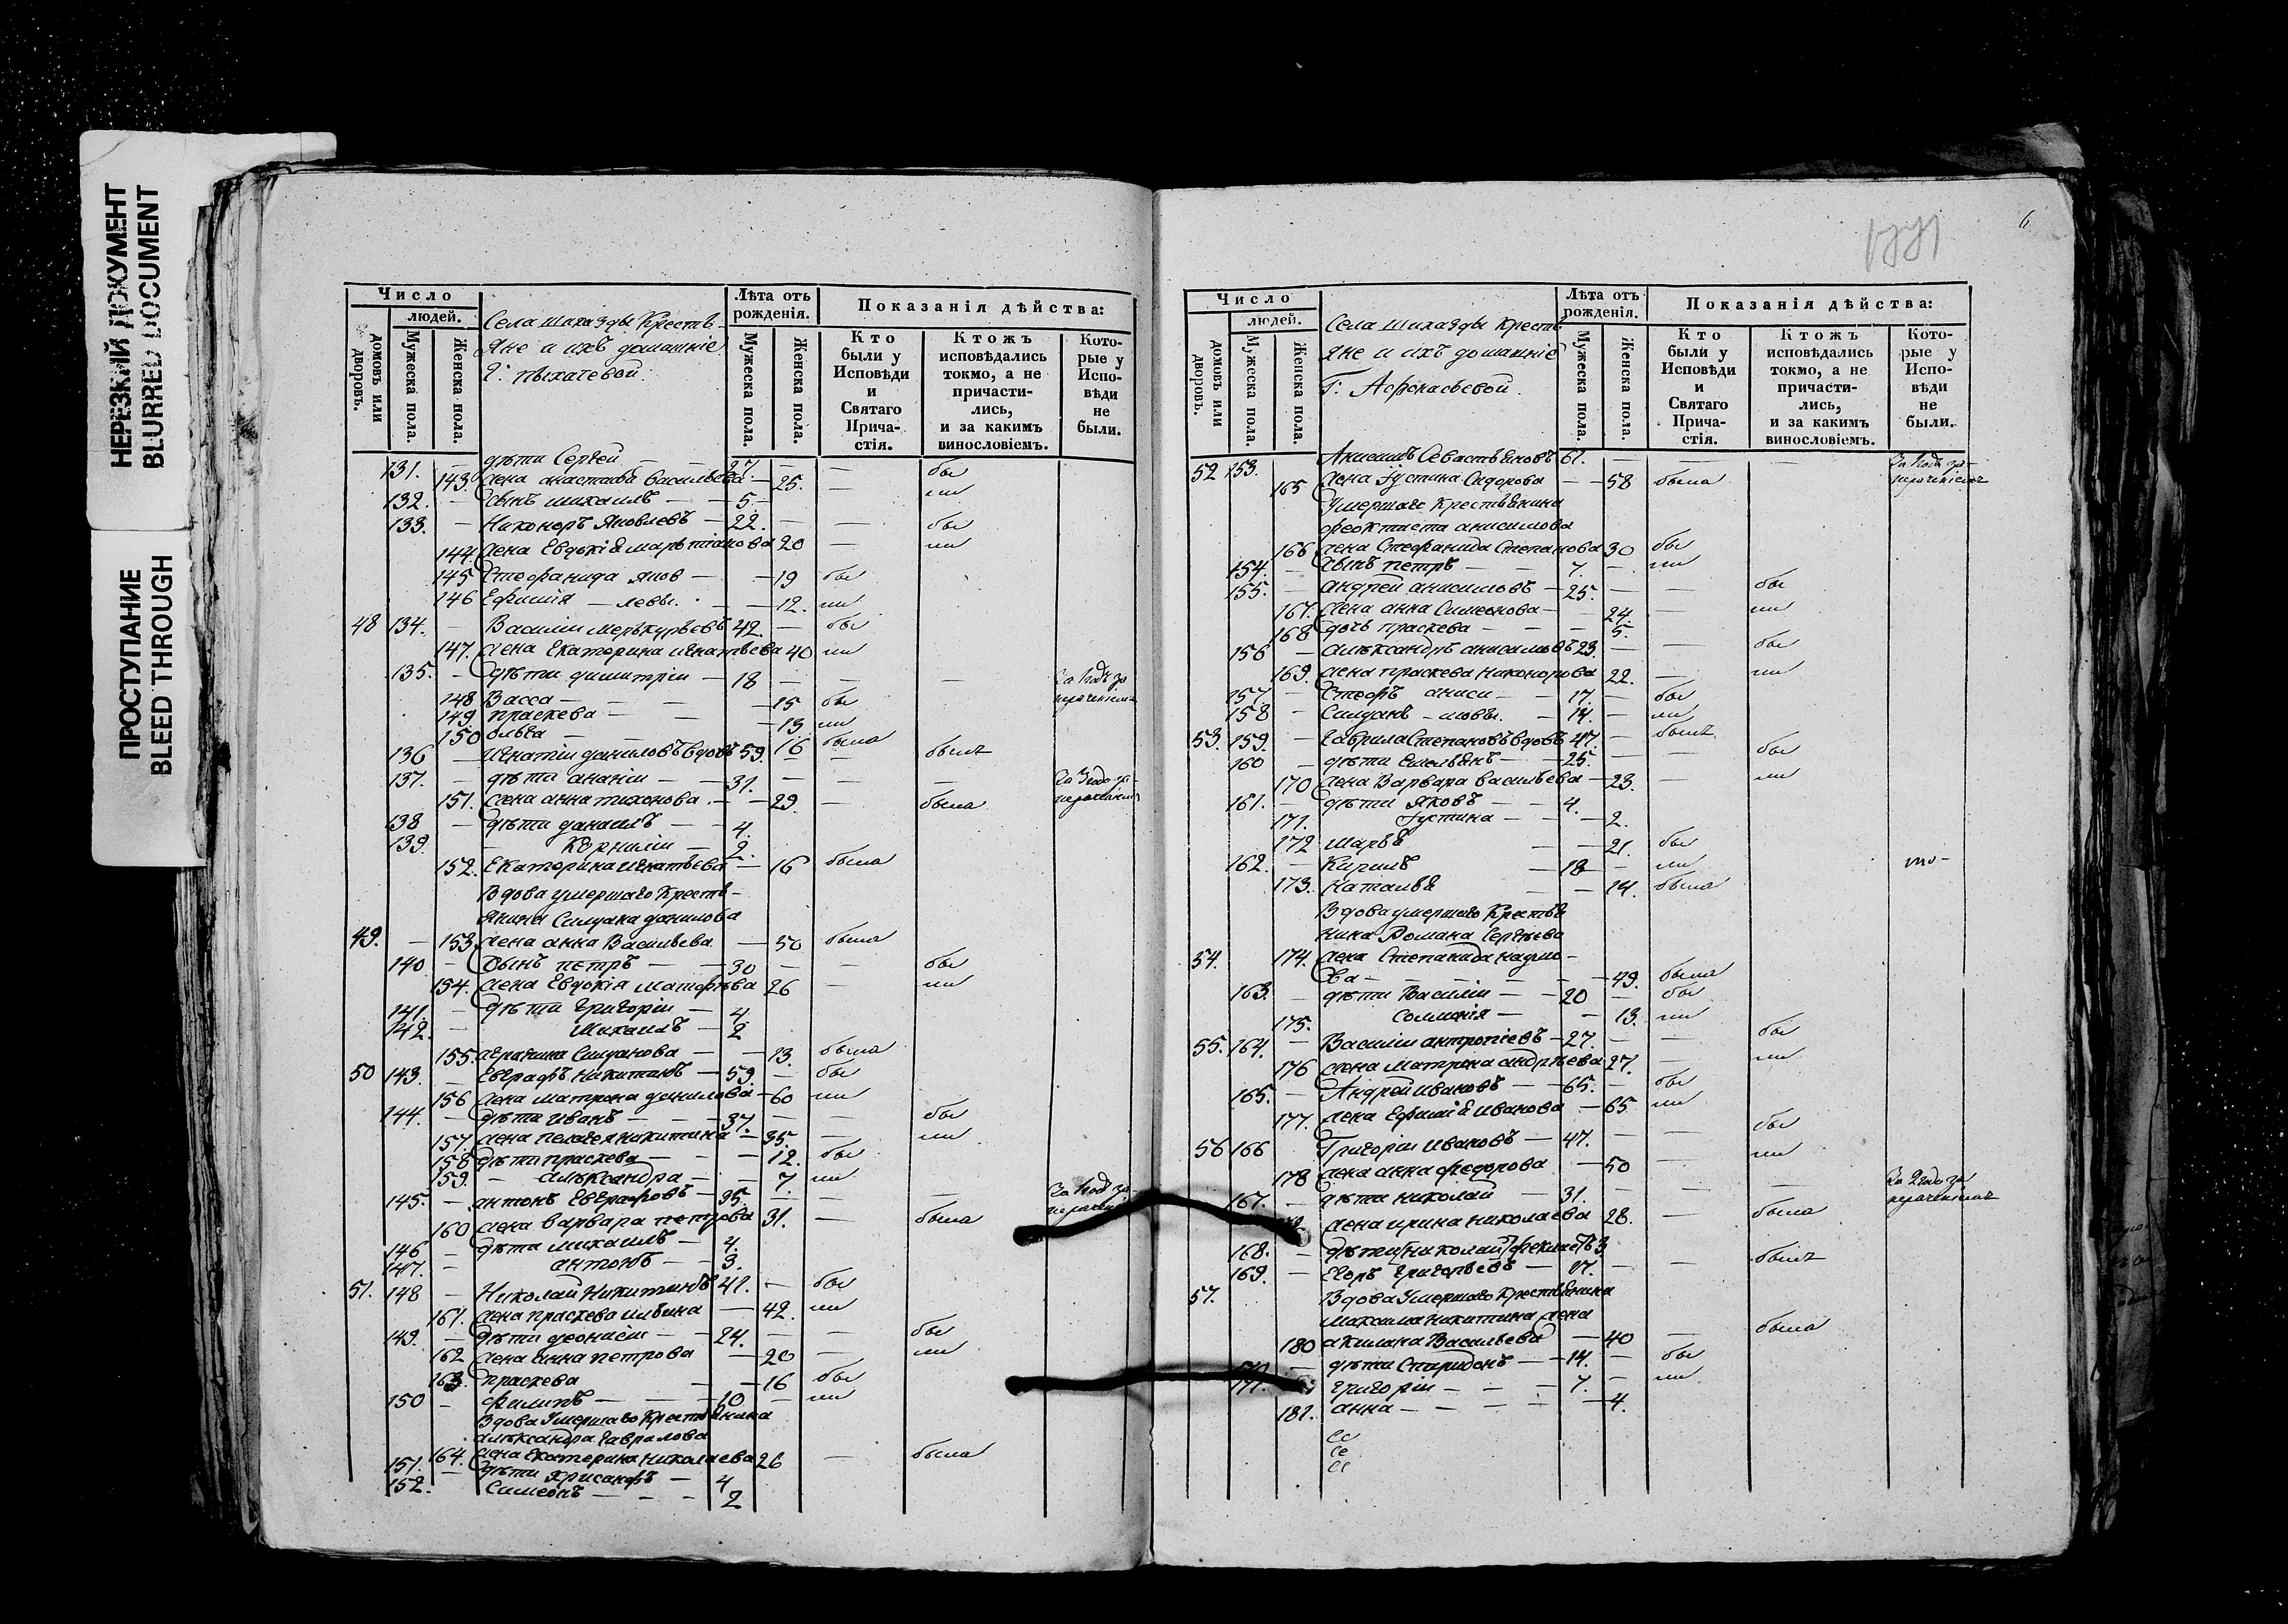 НЕРЕЗКИЙ ДОКУМЕНТ
BLURRED DOCUMENT
ПРОСТУПАНИЕ
BLEED THROUGH
Число
людей.
домовъ или дворовъ.
Мужеска пола.
Женска пола.
Села Шихазды Кресть-
яне и ихъ домашніе
Г: Пыхачевой.
Лѣта отъ рожденія.
Мужеска пола.
Женска пола.
Показанія дѣйства:
Кто были у Исповѣди и Святаго Прича-стія.
Ктожъ исповѣдались токмо, а не причасти-лись, и за какимъ винословіемъ.
Кото-рые у Испо-вѣди не были.
131. — дѣти Сергей — 27. — — бы
143. жена Анастасія Васильева — 25. — ли
132. — сынъ Михаилъ — 5.
133. — Никоноръ Яковлевъ — 22. — — бы
144. жена Евдокія 20 — ли
145 Стефанида Яков — — 19 бы
146 Ефимія — левы. — 12. ли
48 134. — Василіи Меркурьевъ 42. — бы
147. жена Екатерина Игнатьева 40 ли
135. — дѣти Димитріи — 18 — — — За 1 годъ за нераченіемъ
148 Васса — — — 15 бы
149. Праскева — — — 13. ли
150 Ольга — — 16 была
136 — Игнатіи Даниловъ вдовъ 59. — — былъ
137. — дѣти Ананіи — 31. — — —
151. жена Анна Тихонова — — 29. — была
138 — дѣти Даниилъ — 4.
139. — Корниліи — 2.
152. Екатерина Игнатьева — 16 была
Вдова умершаго Кресть-
янина Силуана Данилова
49. — 153. жена Анна Васильева — 50 была
140 — сынъ Петръ — 30 — — бы
154. жена Евдокія Матфѣева 26 — ли
141. — дѣти Григоріи — 4.
142. — Михаилъ — 2
155. Силуанова — 13. была
50 143. — Евграфъ Никитинъ — 59. — бы
156 жена Матрона Данилова — 60 ли
144. — дѣти Иванъ — 37. — — бы
157. жена Пелагея Никитина — 35. — ли
158 дѣти Праскева — — 12. бы
159. — Александра — — 7. ли
145. — Антонъ Евграфовъ — 35. — — — За 1 годъ за
160 жена Варвара Петрова 31. — была
146 — дѣти Михаилъ — 4.
147. — Антонъ — 3.
51. 148 — Николай Никитинъ 41. — бы
161. жена Праскева Ильина — 42. ли
149. — дѣти Деонисіи — 24. — — бы
162 жена Анна Петрова — 20 — ли
163. Праскева — — 16 бы
150 — Филипъ — — 10 — ли
Вдова Умершаго Крестьянина
Александра Гаврилова
164. жена Екатерина Николаева 26 — была
151. — дѣти Хрисанфъ — 4
152. Симеонъ — — — 2
6
Число
людей.
домовъ или дворовъ.
Мужеска пола.
Женска пола.
Села Шихазды Кресть
яне и ихъ домашніе
Г: Афонасьевой.
Лѣта отъ рожденія.
Мужеска пола.
Женска пола.
Показанія дѣйства:
Кто были у Исповѣди и Святаго Прича-стія.
Ктожъ исповѣдались токмо, а не причасти-лись, и за какимъ винословіемъ.
Кото-рые у Испо-вѣди не были.
52 153. Анисимъ Севастьяновъ 61. — — — За 1 годъ за-нераченіемъ
165 жена Густина Сидорова — — 58 была
Умершаго Крестьянина
Феоктиста Анисимова
166 жена Стефанида Степанова 30 бы
154. — сынъ Петръ — — 7. — ли
155. — Андрей Анисимовъ — 25. — — бы
167. жена Анна Симеонова — 24. — ли
168 дочь Праскева — — — 5.
156 — Александръ Анисимовъ 23. — — бы
169. жена Праскева Никонорова 22. — ли
157. — Егоръ Аниси — — 17. — бы
158 — Силуанъ — мовы. — 14. — ли
53. 159. — Гаврила Степановъ вдовъ 47. — былъ
160 — дѣти Емельянъ — 25. — — бы
170 жена Варвара Васильева — 23. — ли
161. — дѣти Яковъ — — 4.
171. Густина — — — 2.
172 Марья — — 21. бы
162. — Кирилъ — 18 — ли
173. Наталья — — 14. была
Вдова умершаго Крестья
нина Романа Сергѣева
54. 174. жена Степанида Наумо-
ва — — — — — 49. была
163. — дѣти Василіи — — 20 — бы
175. Соломонія — — 13. ли
55. 164. — Василіи Антропіевъ — 27. — — бы
176 жена Матрена Андрѣева 27. — ли
165. — Андрей Ивановъ — — 65. — бы
177. жена Ефимія Иванова — 65 ли
56 166 Григоріи Ивановъ — 47. — — бы
178 жена Анна Федорова — 50 — ли
167. — дѣти Николай — 31. — — — За 2 года за нераченіемъ
жена Ирина Николаева 28. — была
168. — дѣти
169. — Егоръ Григорьевъ — 17. — — былъ
57. Вдова Умершаго Крестьянина
Максима Никитина жена
180 Акилина Васильева — 40 — была
— дѣти Спиридонъ — — 14. — бы
Григоріи — — — 7. — ли
181. Анна — — — — 4.